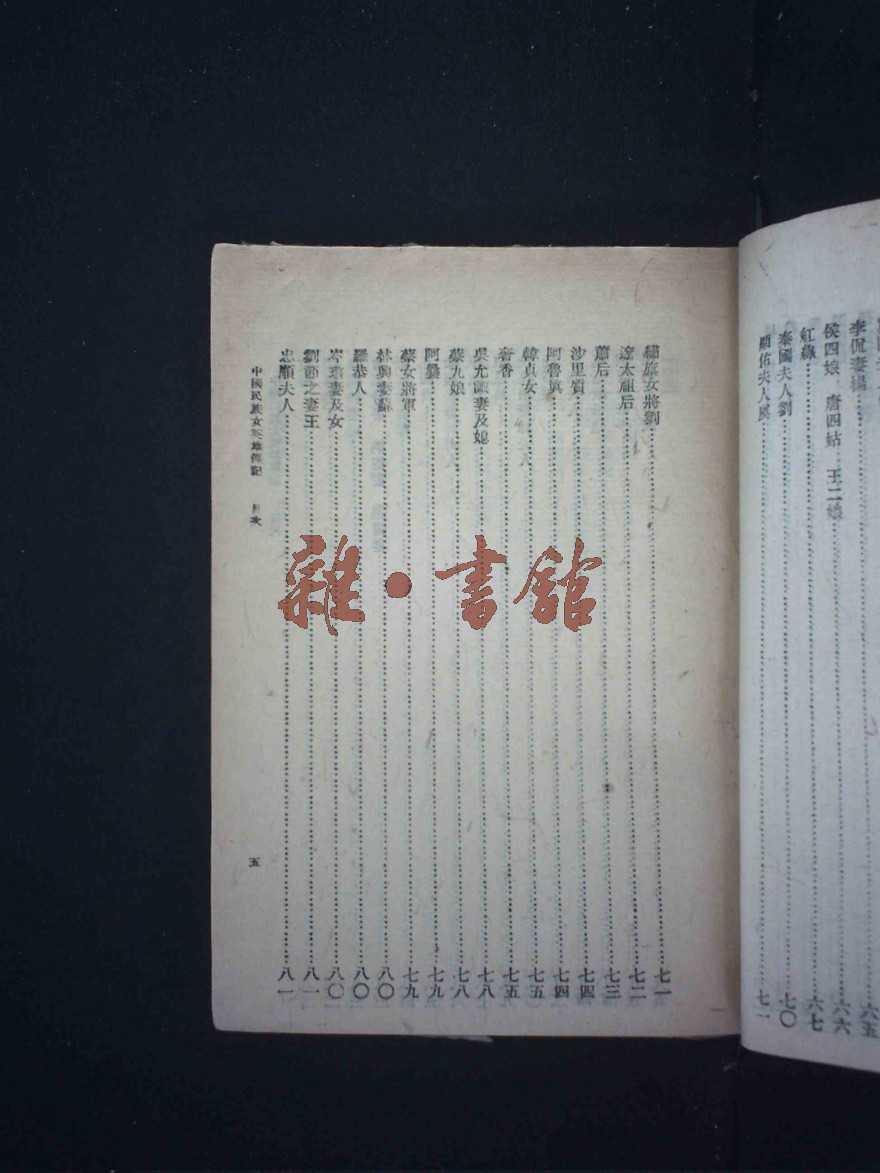 李侃妻楊……六五
侯四娘　唐四姑　王二娘……六六
紅綠……六七
秦國夫人劉……七〇
順佑夫人吳……七一
繡旗女將劉……七一
遼太祖后……七二
蕭后……七三
沙里質……七四
阿魯真……七四
韓貞女……七五
奢香……七五
吳尤誠妻及媳……七八
蔡九娘……七八
阿曩……七九
蔡女將軍……七九
林興妻蘇……八〇
羅恭人……八〇
岑瓊妻及女……八〇
劉節之妻王……八一
忠順夫人……八一
中國民族女英雄傳記　目次　五
雜・書館